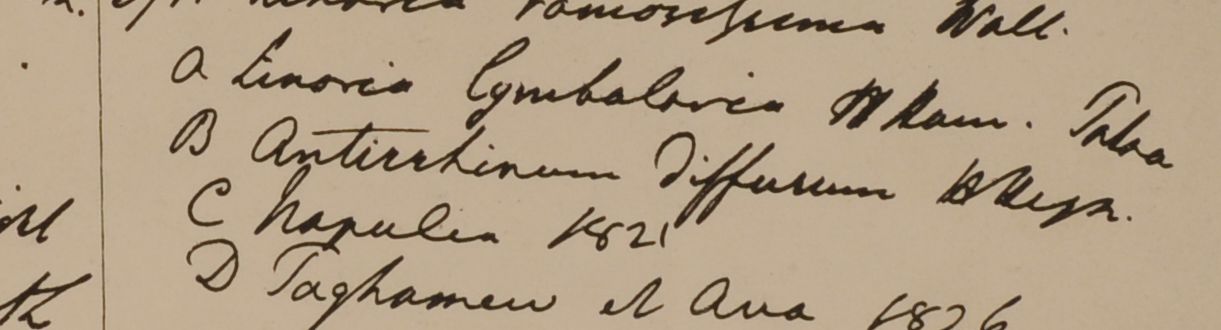 Linaria ramosissima Wall.
A Linaria Cymbalaria H Ham. Patna
B Antirrhinum diffusum H Heyn.
C Napulia 1821
D Taghamew et Ava 1826